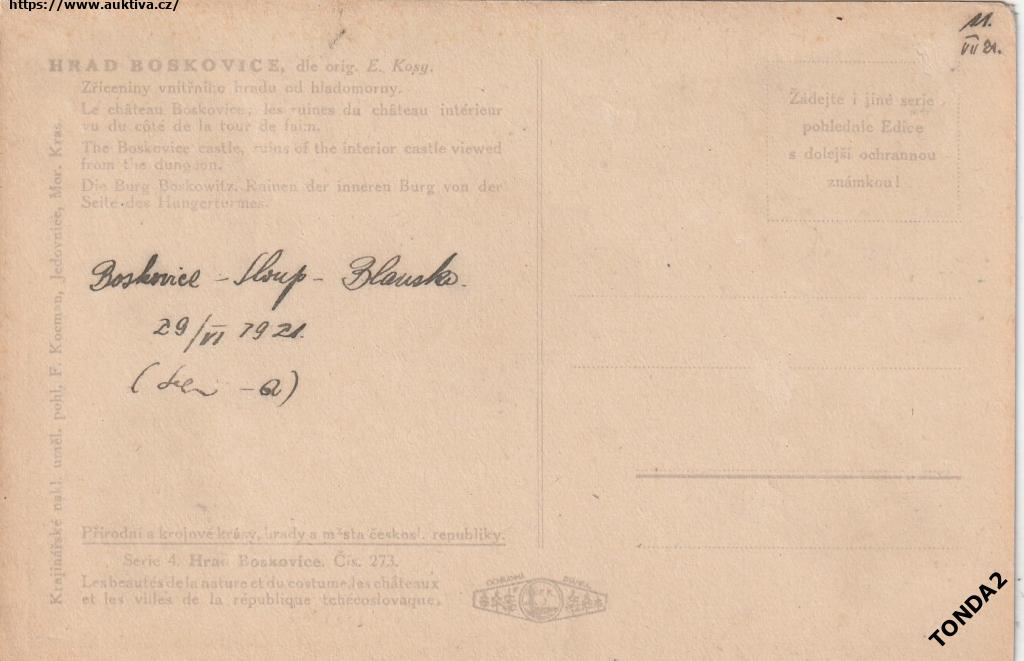 https://www.auktiva.cz/
11.
VII 21.
HRAD BOSKOVICE, dle orig. E. Kosy.
Zříceniny vnitřního hradu od hladomorny.
Le château Boskovice, les ruines du château intérieur
vu du côté de la tour de faim.
The Boskovice castle, ruins of the interior castle viewed
from the dungeon.
Die Burg Boskowitz. Ruinen der inneren Burg von der
Seite des Hungerturmes.
Žádejte i jiné serie
pohlednic Edice
s dolejší ochrannou
známkou!
Krajinářské nakl. uměl. pohl. F. Kocman, Jedovnice, Mor. Kras.
Boskovice - Sloup - Blansko.
29/VI 1921.
Přírodní a krojové krásy, hrady a města českosl. republiky.
Serie 4. Hrad Boskovice. Čís. 273.
Les beautés de la nature et du costume, les châteaux
et les villes de la république tchécoslovaque.
OCHRANNÁ ZNÁMKA
TONDA2